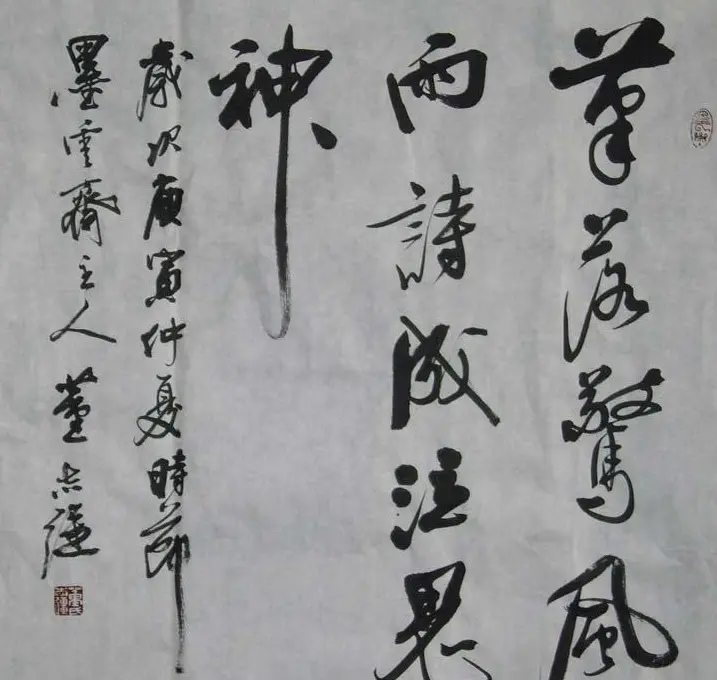 筆落驚風
雨詩成泣鬼
神
歲次庚寅仲夏時節
墨雲齋主人董志謙